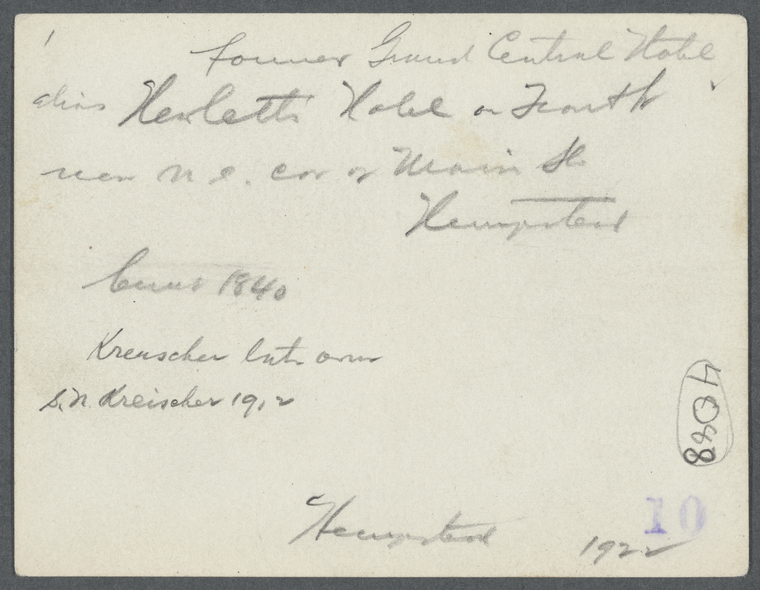 former Grand Central Hotel
alias Hewletts Hotel on Front St
near N.E. cor of Main St
Hempstead
Circa 1840
Kreuscher late owner
S.N. Kreischer 1912
4088
Hempstead 1922
10